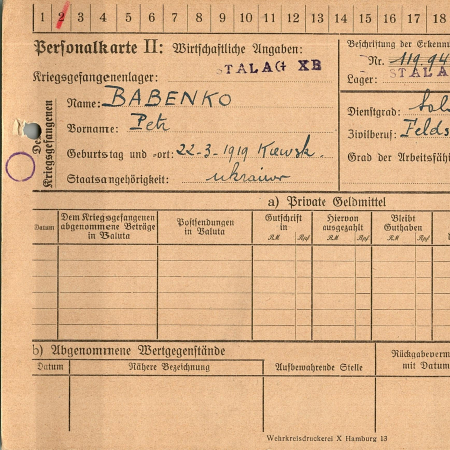 1 2 3 4 5 6 7 8 9 10 11 12 13 14 15 16 17 18
Personalkarte II: Wirtschaftliche Angaben:
Beschriftung der Erkennu
Nr. 119.94
Kriegsgefangenenlager: STALAG XB
Lager: STALA
Des Kriegsgefangenen
Name: BABENKO
Vorname: Petr
Geburtstag und -ort: 22-3-1919 Kiewsk.
Staatsangehörigkeit: ukrainer
Dienstgrad: Sol
Zivilberuf: Felds
Grad der Arbeitsfähi
a) Private Geldmittel
Datum
Dem Kriegsgefangenen abgenommene Beträge in Valuta
Postsendungen in Valuta
Gutschrift in
RM Rpf
Hiervon ausgezahlt
RM Rpf
Bleibt Guthaben
RM Rpf
b) Abgenommene Wertgegenstände
Datum
Nähere Bezeichnung
Aufbewahrende Stelle
Rückgabeverm
mit Datum
Wehrkreisdruckerei X Hamburg 13